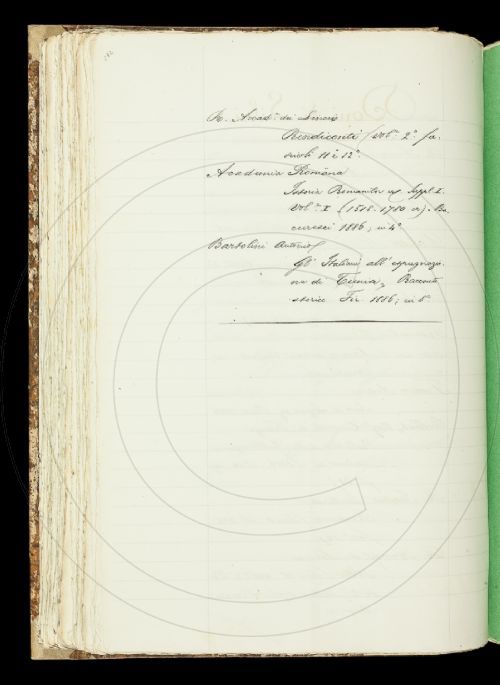 R. Accad.ª dei Lincei
Rendiconti (Vol.e 2º fa-
scicoli 11º e 12º
Academia Româna
Istoria Romanilor Suppl. I.
Vol.e I (1518-1780). Bu-
curesci 1886, in 4º
Bartolini Antonio
Gli Italiani all'espugnazio-
ne di Racconto
storico Fir. 1886; in 8º